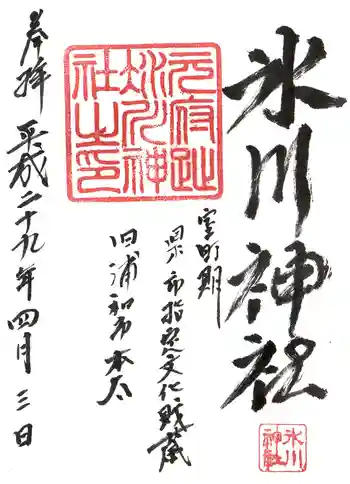 氷川神社
室町期
県市指定文化財蔵
旧浦和市本太
奉拝 平成二十九年四月三日
氷川神社之印
氷川神社